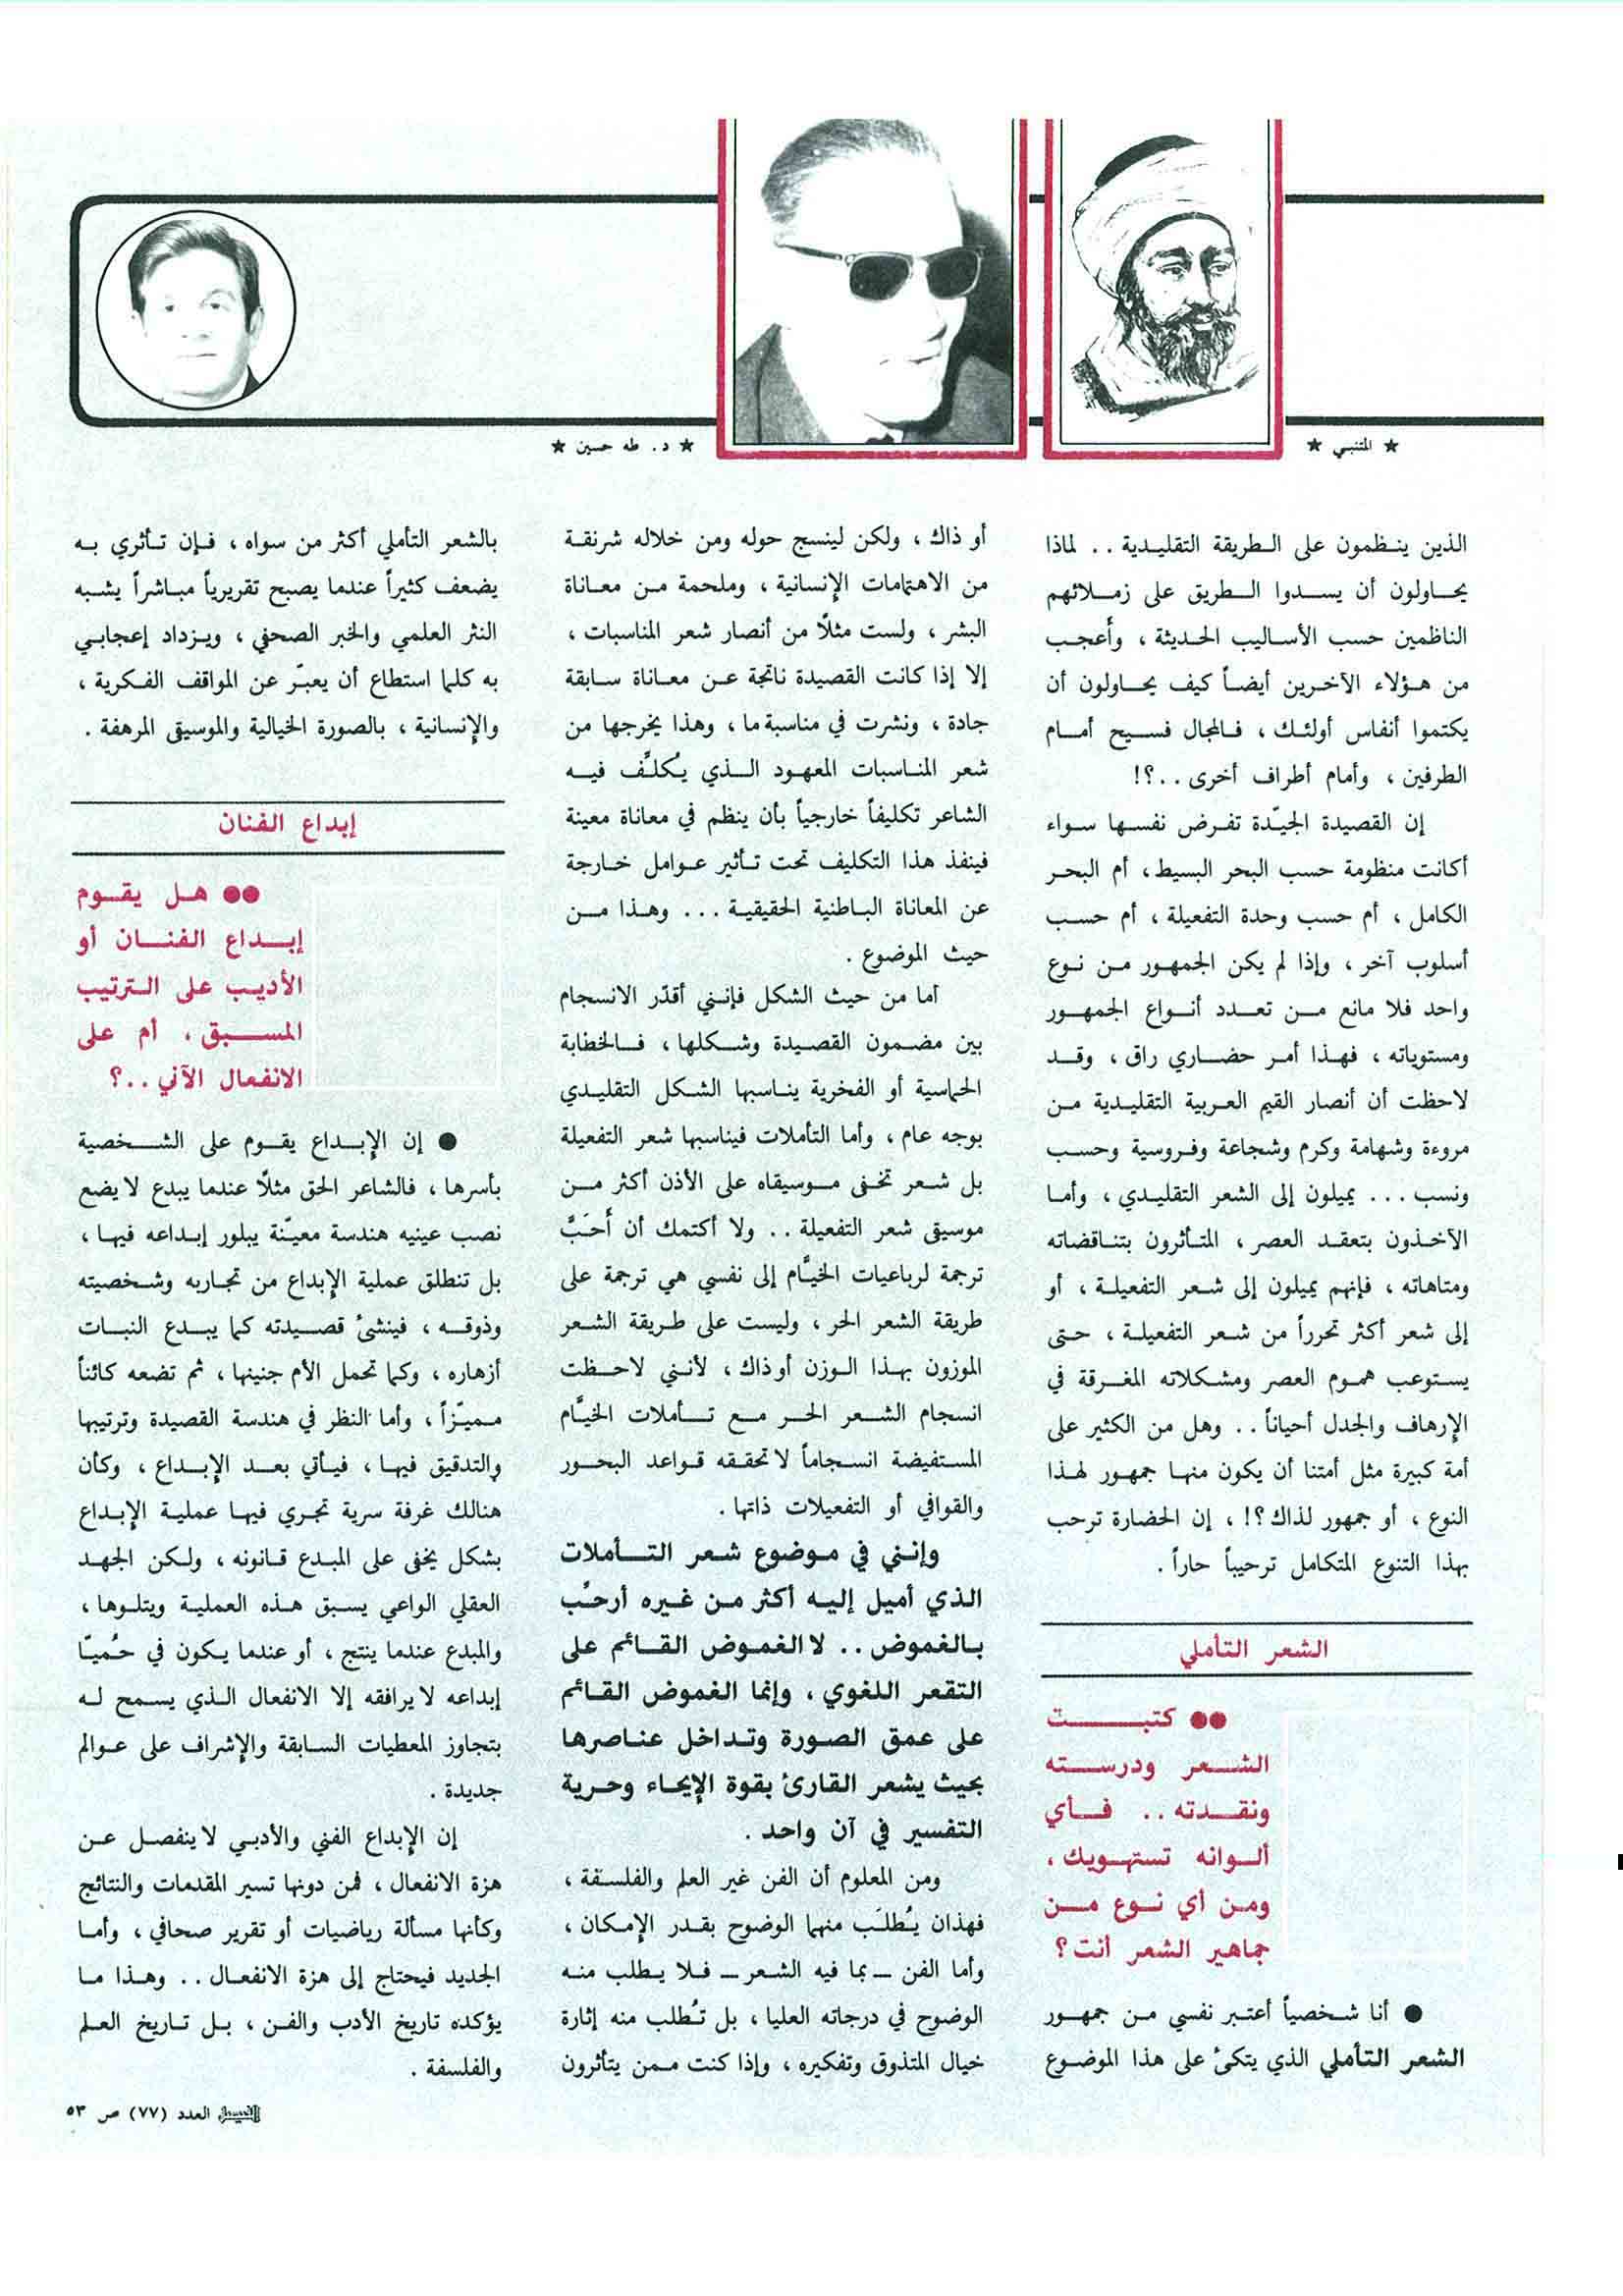 ★ المتنبي ★
★ د. طه حسين ★
الذين ينظمون على الطريقة التقليدية .. لماذا
يحاولون أن يسدوا الطريق على زملائهم
الناظمين حسب الأساليب الحديثة ، وأعجب
من هؤلاء الآخرين أيضاً كيف يحاولون أن
يكتموا أنفاس أولئك ، فالمجال فسيح أمام
الطرفين ، وأمام أطراف أخرى ..؟!
إن القصيدة الجيّدة تفرض نفسها سواء
أكانت منظومة حسب البحر البسيط ، أم البحر
الكامل ، أم حسب وحدة التفعيلة ، أم حسب
أسلوب آخر ، وإذا لم يكن الجمهور من نوع
واحد فلا مانع من تعدد أنواع الجمهور
ومستوياته ، فهذا أمر حضاري راق ، وقد
لاحظت أن أنصار القيم العربية التقليدية من
مروءة وشهامة وكرم وشجاعة وفروسية وحسب
ونسب ... يميلون إلى الشعر التقليدي ، وأما
الآخذون بتعقد العصر ، المتأثرون بتناقضاته
ومتاهاته ، فإنهم يميلون إلى شعر التفعيلة ، أو
إلى شعر أكثر تحرراً من شعر التفعيلة ، حتى
يستوعب هموم العصر ومشكلاته المغرقة في
الإرهاف والجدل أحياناً .. وهل من الكثير على
أمة كبيرة مثل أمتنا أن يكون منها جمهور لهذا
النوع ، أو جمهور لذاك ؟! ، إن الحضارة ترحب
بهذا التنوع المتكامل ترحيباً حاراً .
الشعر التأملي
●● كتبت
الشعر ودرسته
ونقدته .. فأي
ألوانه تستهويك ،
ومن أي نوع من
جماهير الشعر أنت ؟
● أنا شخصياً أعتبر نفسي من جمهور
الشعر التأملي الذي يتكئ على هذا الموضوع
أو ذاك ، ولكن لينسج حوله ومن خلاله شرنقة
من الاهتمامات الإنسانية ، وملحمة من معاناة
البشر ، ولست مثلاً من أنصار شعر المناسبات ،
إلا إذا كانت القصيدة ناتجة عن معاناة سابقة
جادة ، ونشرت في مناسبة ما ، وهذا يخرجها من
شعر المناسبات المعهود الذي يُكلَّف فيه
الشاعر تكليفاً خارجياً بأن ينظم في معاناة معينة
فينفذ هذا التكليف تحت تأثير عوامل خارجة
عن المعاناة الباطنية الحقيقية ... وهذا من
حيث الموضوع .
أما من حيث الشكل فإنني أقدّر الانسجام
بين مضمون القصيدة وشكلها ، فالخطابة
الحماسية أو الفخرية يناسبها الشكل التقليدي
بوجه عام ، وأما التأملات فيناسبها شعر التفعيلة
بل شعر تخفى موسيقاه على الأذن أكثر من
موسيقى شعر التفعيلة .. ولا أكتمك أن أَحَبَّ
ترجمة لرباعيات الخيَّام إلى نفسي هي ترجمة على
طريقة الشعر الحر ، وليست على طريقة الشعر
الموزون بهذا الوزن أو ذاك ، لأنني لاحظت
انسجام الشعر الحر مع تأملات الخيَّام
المستفيضة انسجاماً لا تحققه قواعد البحور
والقوافي أو التفعيلات ذاتها .
وإنني في موضوع شعر التأملات
الذي أميل إليه أكثر من غيره أرحِّب
بالغموض .. لا الغموض القائم على
التقعر اللغوي ، وإنما الغموض القائم
على عمق الصورة وتداخل عناصرها
بحيث يشعر القارئ بقوة الإيحاء وحرية
التفسير في آن واحد .
ومن المعلوم أن الفن غير العلم والفلسفة ،
فهذان يُطلَب منهما الوضوح بقدر الإمكان ،
وأما الفن – بما فيه الشعر – فلا يطلب منه
الوضوح في درجاته العليا ، بل تُطلب منه إثارة
خيال المتذوق وتفكيره ، وإذا كنت ممن يتأثرون
بالشعر التأملي أكثر من سواه ، فإن تأثري به
يضعف كثيراً عندما يصبح تقريرياً مباشراً يشبه
النثر العلمي والخبر الصحفي ، ويزداد إعجابي
به كلما استطاع أن يعبّر عن المواقف الفكرية ،
والإنسانية ، بالصورة الخيالية والموسيقى المرهفة .
إبداع الفنان
●● هل يقوم
إبداع الفنان أو
الأديب على الترتيب
المسبق ، أم على
الانفعال الآني ..؟
● إن الإبداع يقوم على الشخصية
بأسرها ، فالشاعر الحق مثلاً عندما يبدع لا يضع
نصب عينيه هندسة معيّنة يبلور إبداعه فيها ،
بل تنطلق عملية الإبداع من تجاربه وشخصيته
وذوقه ، فينشئ قصيدته كما يبدع النبات
أزهاره ، وكما تحمل الأم جنينها ، ثم تضعه كائناً
مميّزاً ، وأما النظر في هندسة القصيدة وترتيبها
والتدقيق فيها ، فيأتي بعد الإبداع ، وكأن
هنالك غرفة سرية تجري فيها عملية الإبداع
بشكل يخفى على المبدع قانونه ، ولكن الجهد
العقلي الواعي يسبق هذه العملية ويتلوها ،
والمبدع عندما ينتج ، أو عندما يكون في حُميّا
إبداعه لا يرافقه إلا الانفعال الذي يسمح له
بتجاوز المعطيات السابقة والإشراف على عوالم
جديدة .
إن الإبداع الفني والأدبي لا ينفصل عن
هزة الانفعال ، فمن دونها تسير المقدمات والنتائج
وكأنها مسألة رياضيات أو تقرير صحافي ، وأما
الجديد فيحتاج إلى هزة الانفعال .. وهذا ما
يؤكده تاريخ الأدب والفن ، بل تاريخ العلم
والفلسفة .
الفيصل العدد (٧٧) ص ٥٣